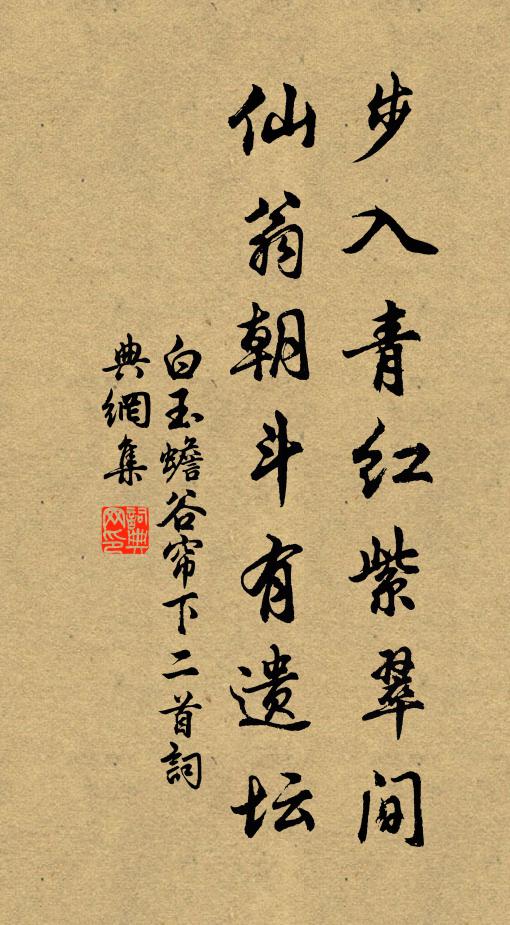 步入青红紫翠间
仙翁朝斗有遗坛
白玉蟾谷帘下二首詞
典網集
詞典
网印